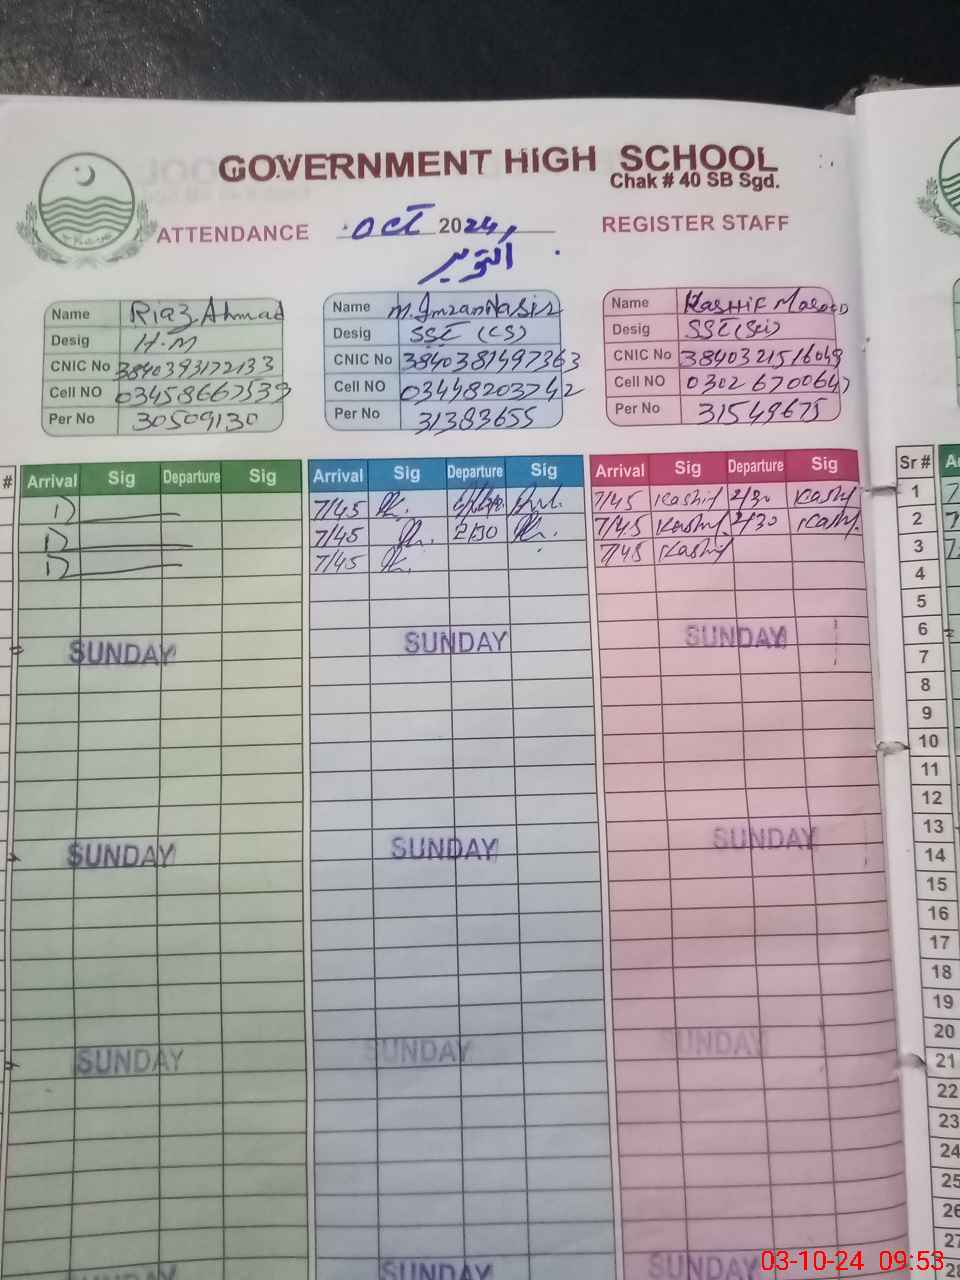 GOVERNMENT HIGH SCHOOL
Chak # 40 SB Sgd.
ATTENDANCE Oct 2024, REGISTER STAFF
اکتوبر
Name Riaz Ahmad
Desig H.M
CNIC No 3840393172133
Cell NO 03458667539
Per No 30509130
Name M. Imran Nasir
Desig SST (CS)
CNIC No 3840381497363
Cell NO 03448203742
Per No 31383655
Name Kashif Masood
Desig SST (Sci)
CNIC No 3840321516049
Cell NO 0302 6700647
Per No 31549675
# Arrival Sig Departure Sig Arrival Sig Departure Sig Arrival Sig Departure Sig Sr #
7/45 7/45 Kashif 2/30 Kashif 1
7/45 2/30 7/45 Kashif 2/30 Kashif 2
7/45 7/45 Kashif 3
4
5
SUNDAY SUNDAY SUNDAY 6
7
8
9
10
11
12
SUNDAY SUNDAY SUNDAY 13
14
15
16
17
18
19
SUNDAY SUNDAY SUNDAY 20
21
22
23
24
25
26
SUNDAY SUNDAY SUNDAY 27
28
03-10-24 09:53